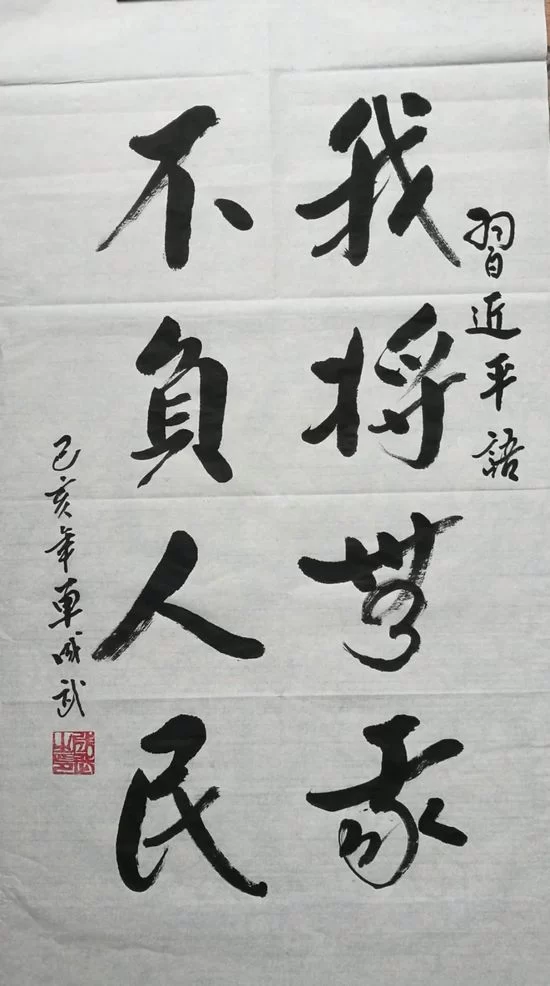 習近平語
我将無我
不負人民
己亥年車成武